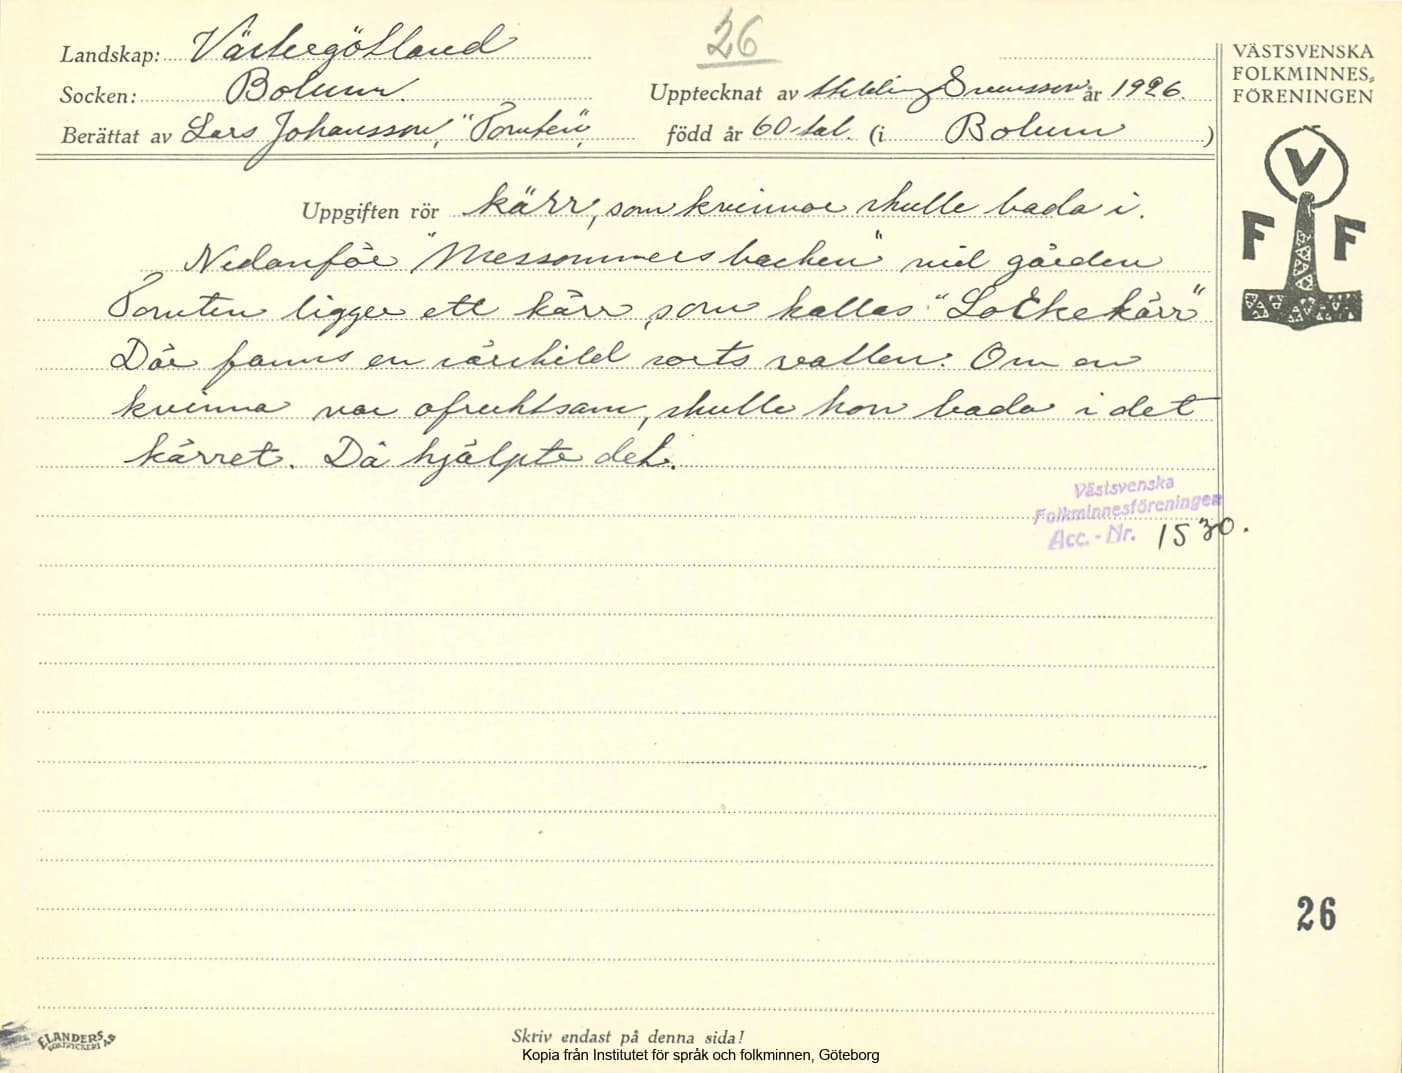 26
Landskap: Västergötland
Socken: Bolum.
Upptecknat av Svensson år 1926.
Berättat av Lars Johansson, "Tomten", född år 60-tal. (i Bolum)
VÄSTSVENSKA
FOLKMINNES-
FÖRENINGEN
V
F F
Uppgiften rör kärr, som kvinnor skulle bada i.
Nedanför "Messommersbacken" vid gården
Tomten ligger ett kärr, som kallas "Lockekärr"
Där fanns en särskild sorts vatten. Om en
kvinna var ofruktsam, skulle hon bada i det
kärret. Då hjälpte det.
Västsvenska
Folkminnesföreningen
Acc.-Nr. 1530.
26
ELANDERS
BOKTRYCKERI AB
Skriv endast på denna sida!
Kopia från Institutet för språk och folkminnen, Göteborg